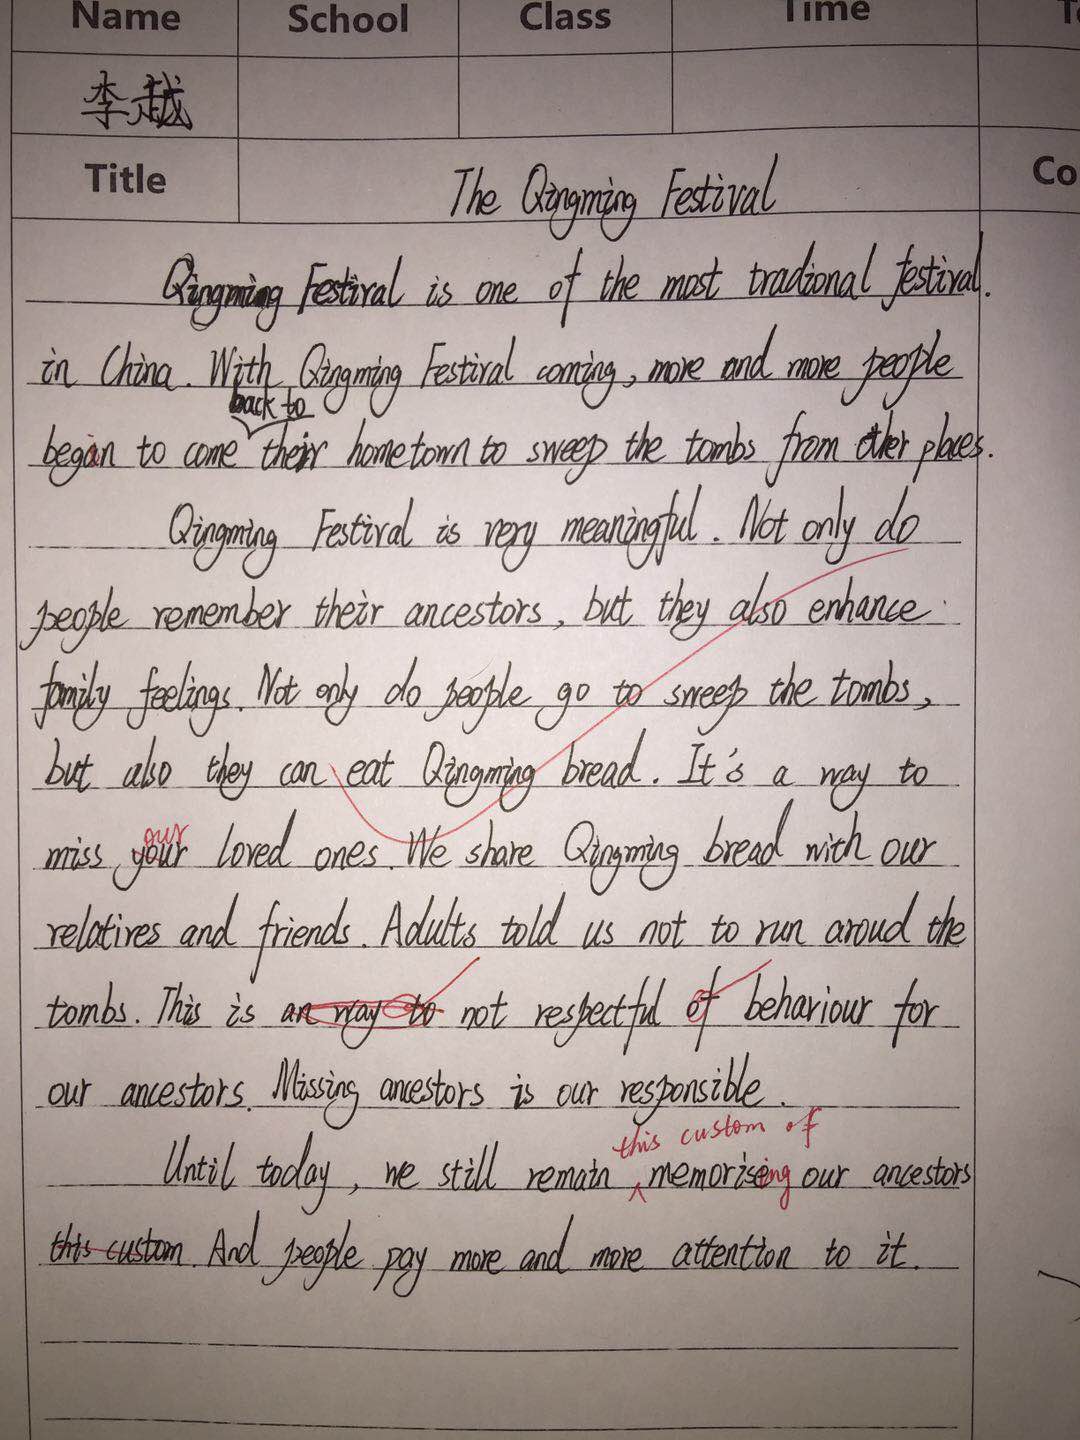 Name School Class Time
李越
Title The Qingming Festival Co
Qingming Festival is one of the most tradional festival.
in China. With Qingming Festival coming, more and more people
back to
began to come their hometown to sweep the tombs from other places.
Qingming Festival is very meaningful. Not only do
people remember their ancestors, but they also enhance
family feelings. Not only do people go to sweep the tombs,
but also they can eat Qingming bread. It's a way to
our
miss your loved ones. We share Qingming bread with our
relatives and friends. Adults told us not to run aroud the
tombs. This is an way to not respectful of behaviour for
our ancestors. Missing ancestors is our responsible.
this custom of
Until today, we still remain memorising our ancestors
this custom. And people pay more and more attention to it.